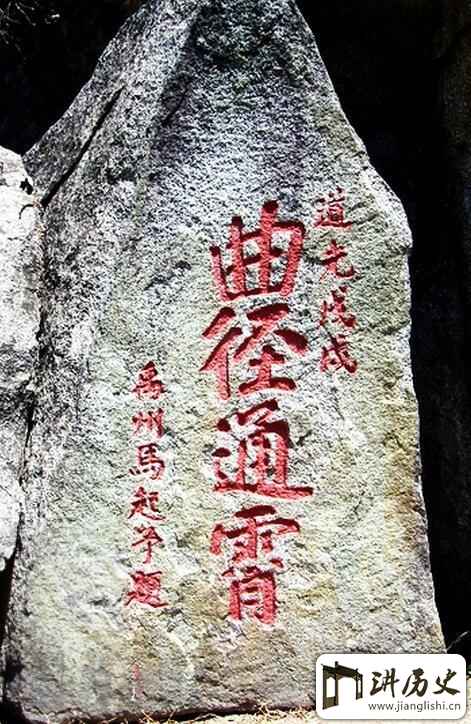 道光戊戌
曲径通霄
禹州馬起升題
讲历史
www.jianglishi.cn